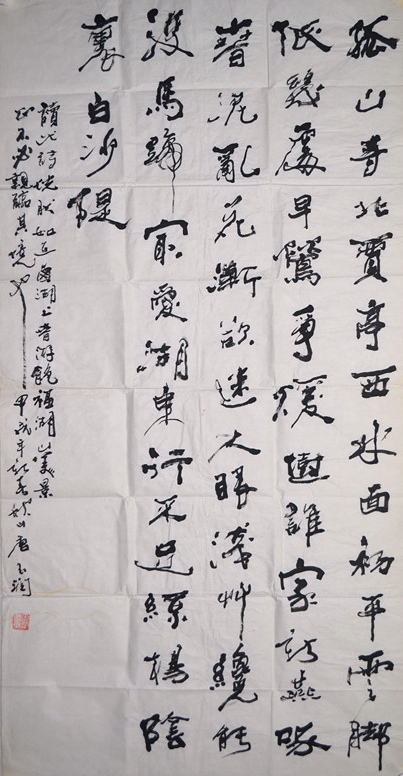 孤山寺北賈亭西水面初平雲脚
低幾處早鶯爭暖樹誰家新燕啄
春泥亂花漸欲迷人眼淺艸纔能
沒馬蹄最愛湖東行不足綠楊陰
裏白沙堤
讀此詩恍然如近西湖上春游飽福湖山美景
似不必親臨其境也甲戌年新春